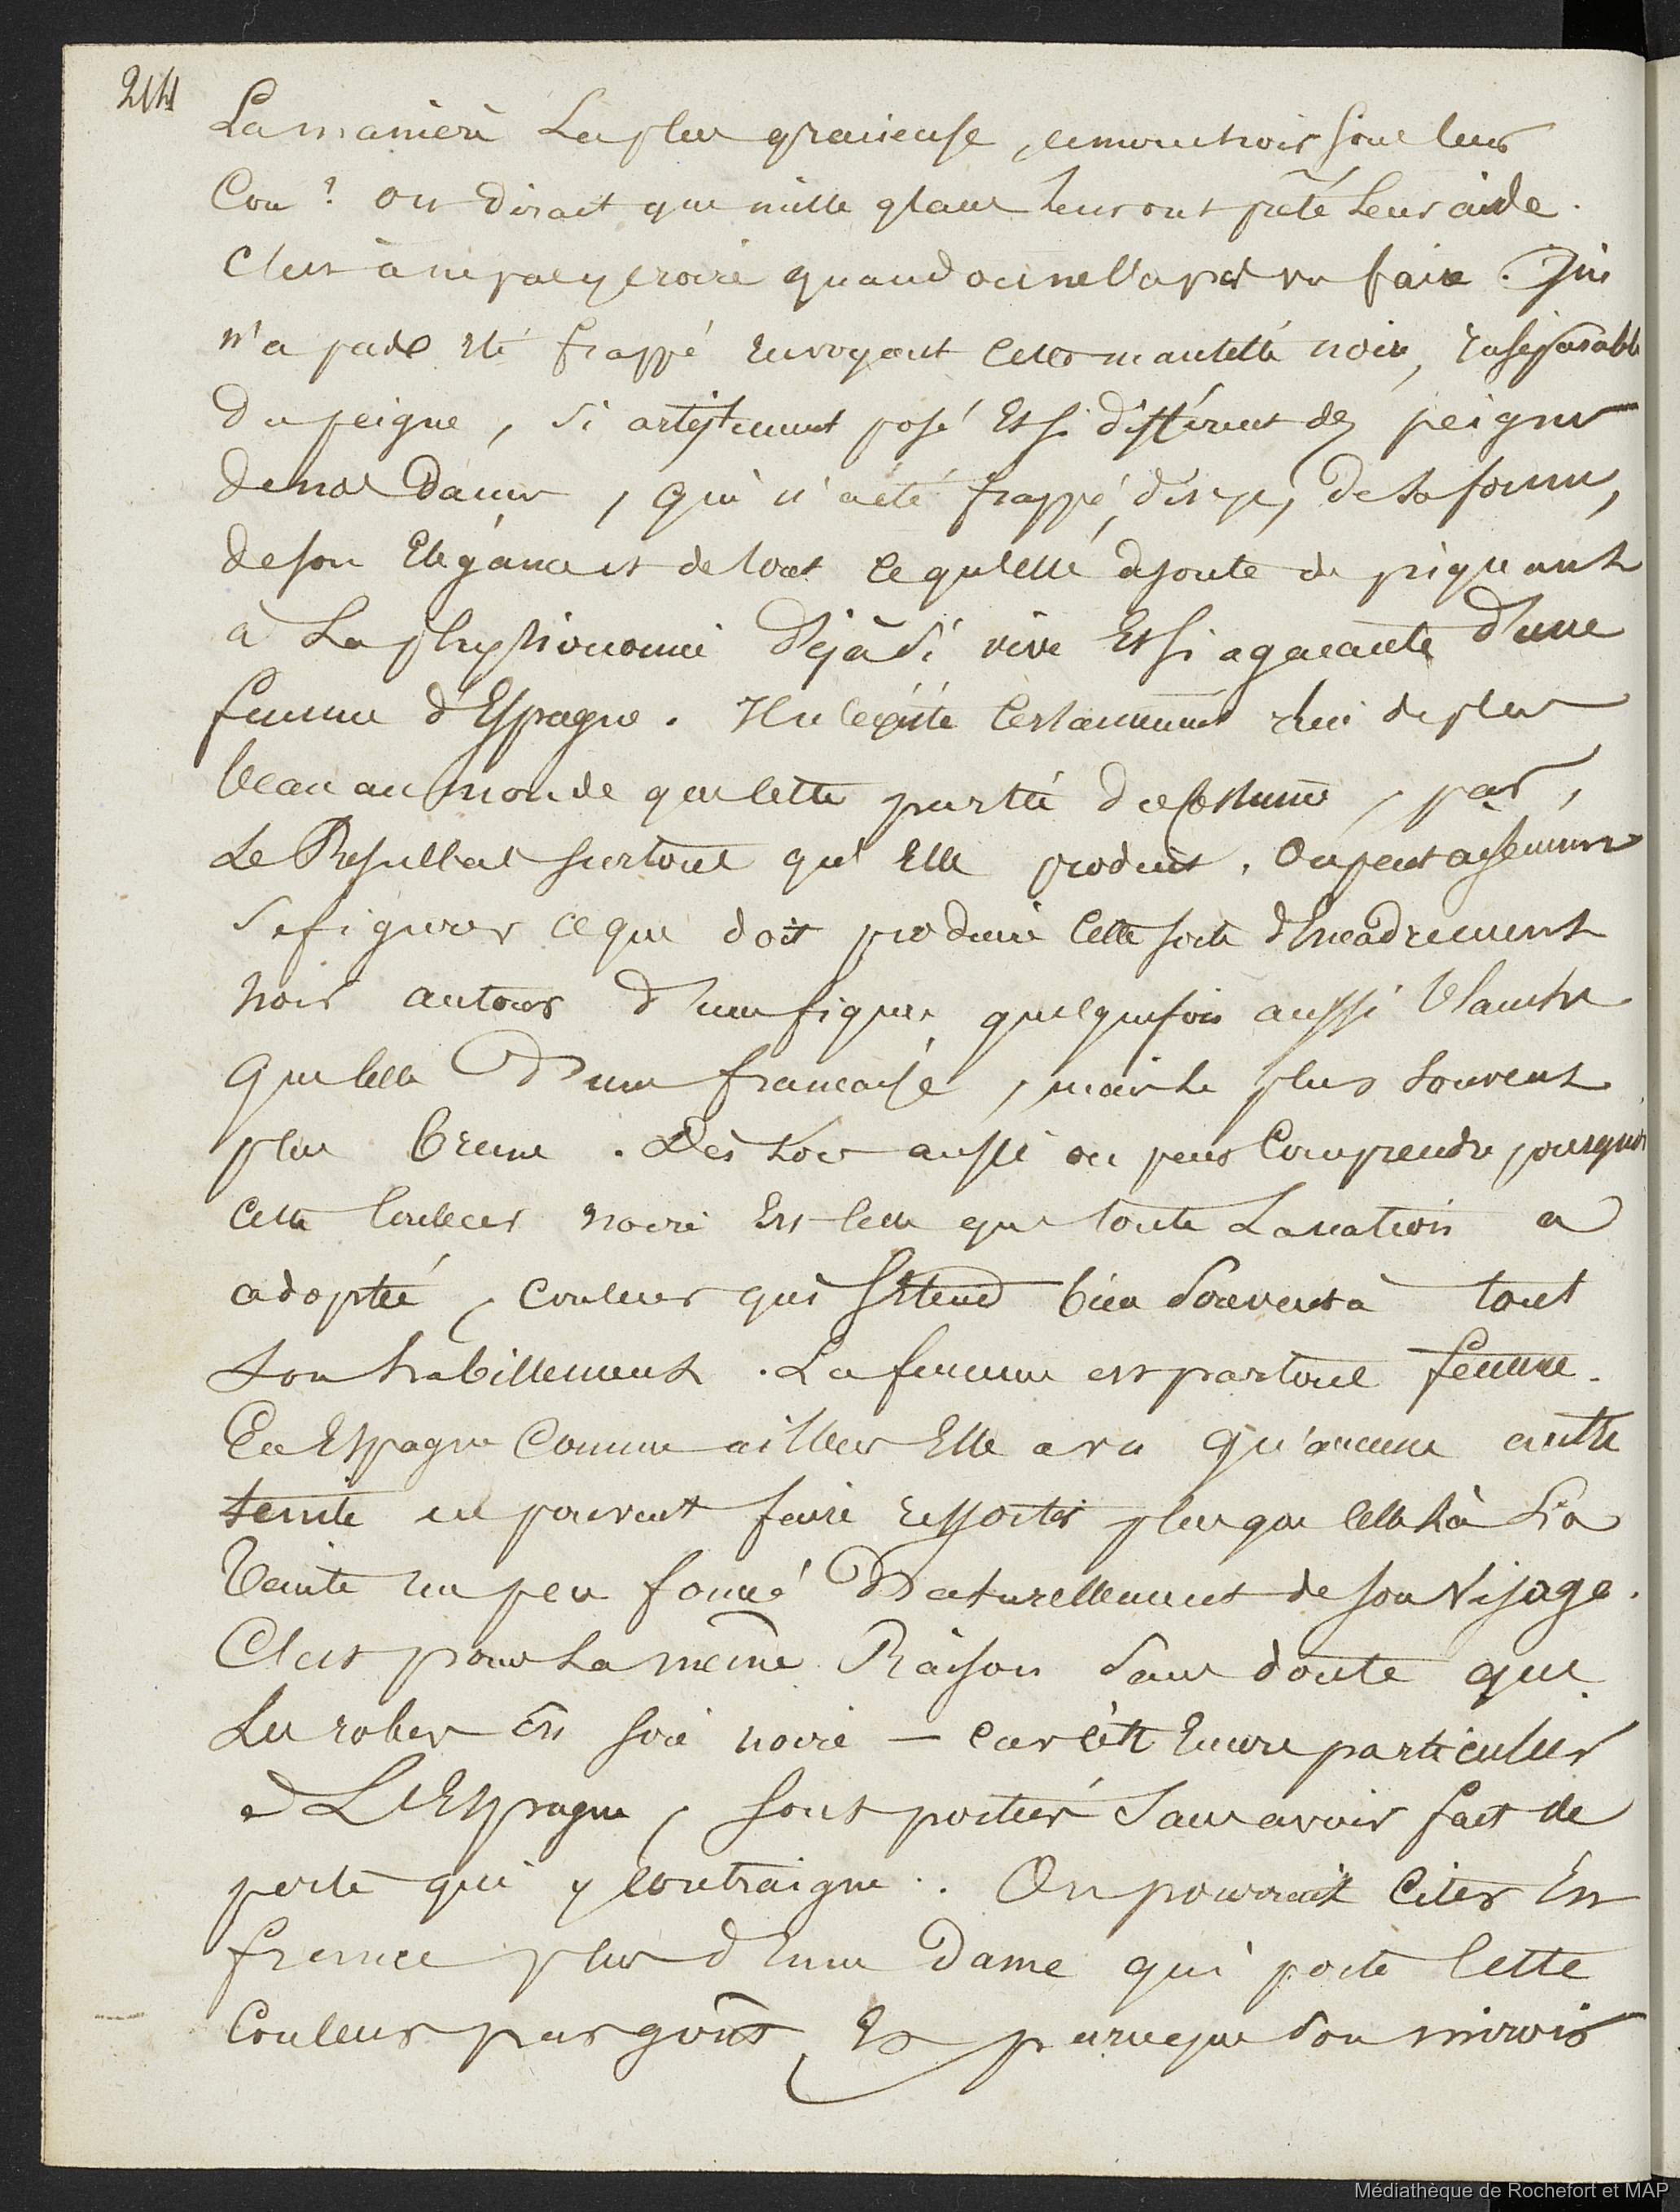 214
La manière La plus gracieuse, un mouchoir sous leur
Cou? on dirait que mille glaces leur ont prêté leur aide.
C'est à ne pas y croire quand on ne l'a pas vu faire. Qui
n'a pas été frappé en voyant cette mantille noire, inséparable
Du peigne, si artistement posé Et si différent des peignes
de nos Dames, qui n'a été frappé, dis-je, de sa forme,
de son Elégance et de tout ce qu'elle ajoute de piquant
à La physionomie Déjà si vive Et si agacante D'une
femme d'Espagne. Il n'existe Certainement rien de plus
beau au monde que cette partie du costume, par,
Le Resultat surtout qu'Elle produit. On peut aisément
se figurer ce que doit produire cette sorte d'Encadrement
noir autour D'une figure quelquefois aussi blanche
que celle D'une francaise, mais le plus souvent
plus brune. Dès lors aussi on peut Comprendre pourquoi
cette couleur noire Est celle que toute La nation a
adoptée, couleur qui s'étend bien souvent à tout
son habillement. La femme est partout femme.
En Espagne Comme ailleurs Elle a vu qu'aucune autre
teinte ne pouvait faire ressortir plus que celle là La
Teinte un peu foncé Naturellement de son Visage.
C'est pour La même Raison sans doute que
Les robes En soie noire — car c'est Encore particulier
à L'Espagne, sont portées sans avoir fait de
perte qui y contraigne. On pourrait Citer En
france plus d'Une Dame qui porte Cette
Couleur par goût Et parceque son miroir
Médiathèque de Rochefort et MAP